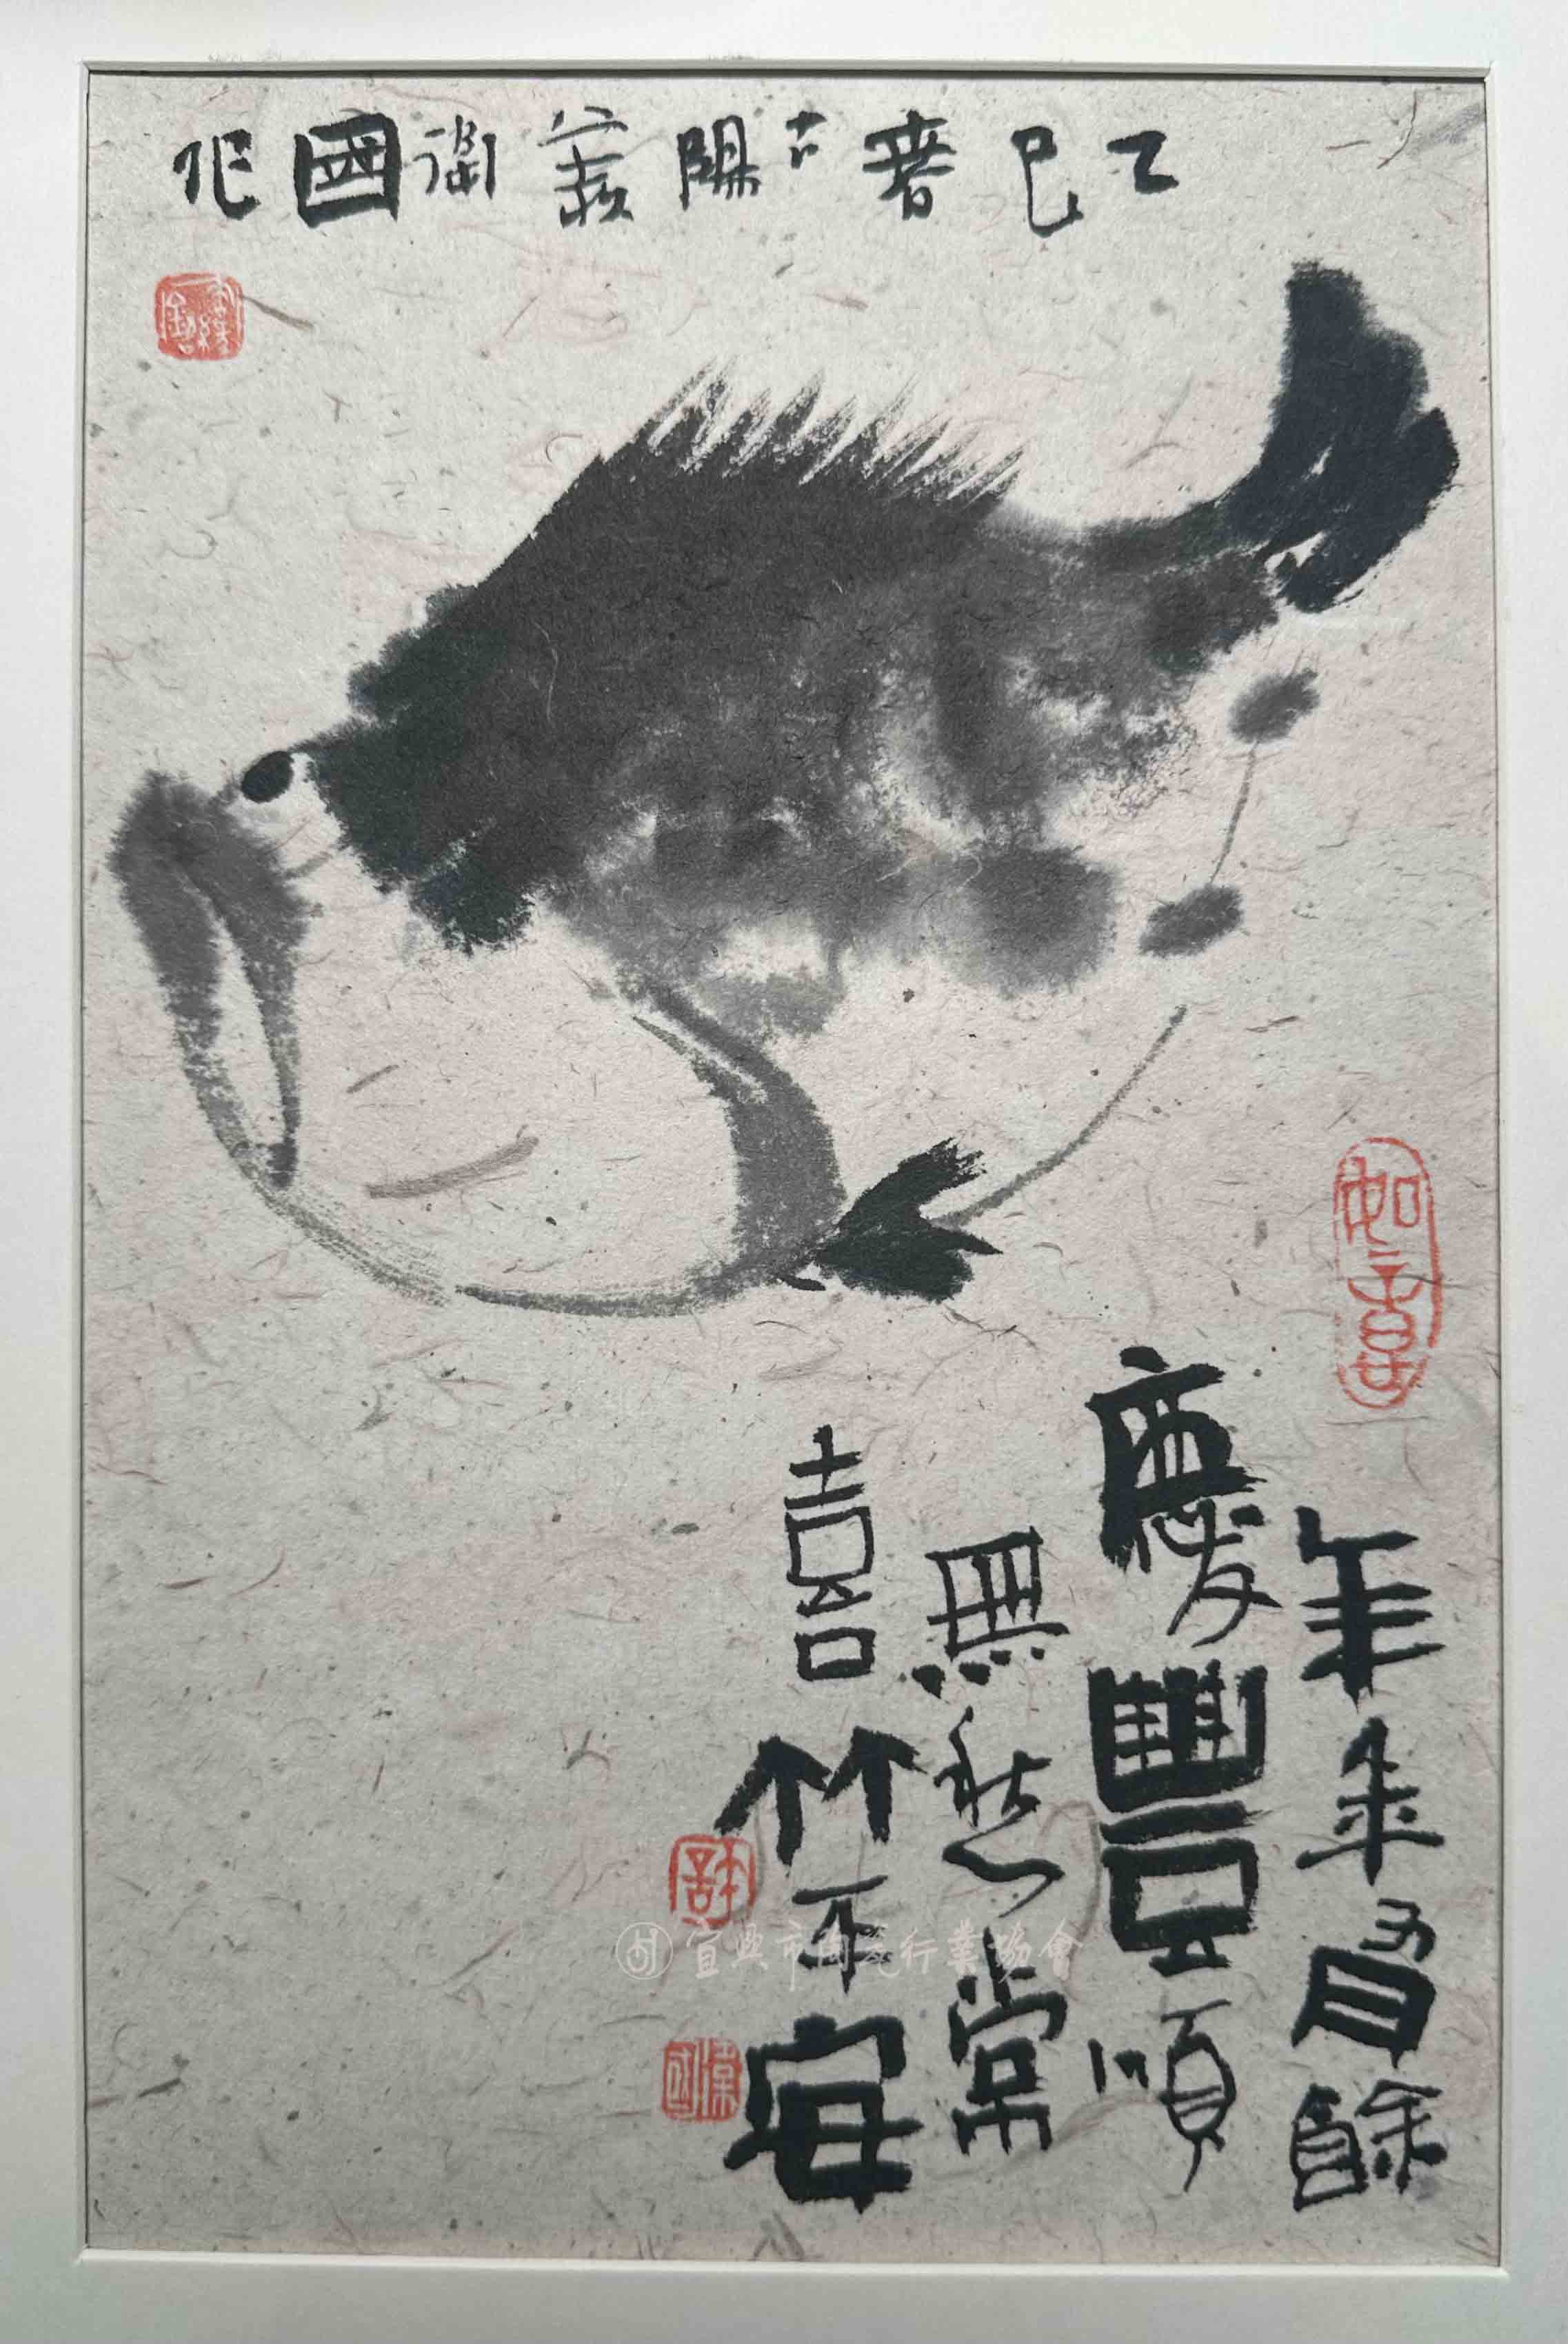 乙巳春古陽羨衛國作
年年有餘
慶豐順
無愁常
喜竹平安
許
宜興市陶瓷行業協會